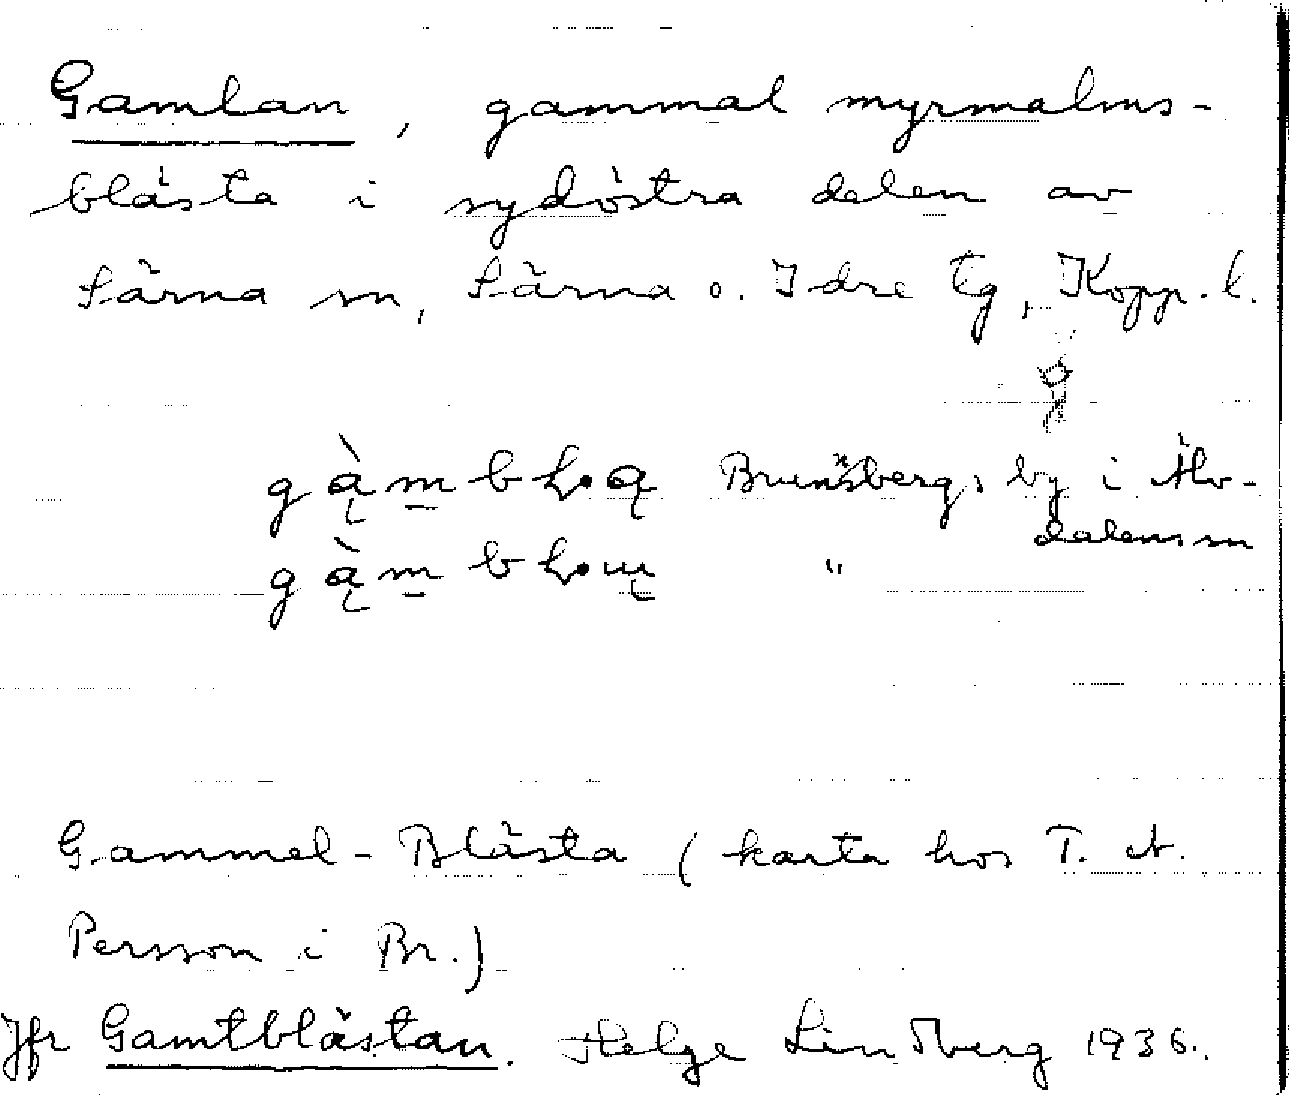 Gamlan, gammal myrmalms-
blästa i sydöstra delen av
Särna sn, Särna o. Idre tg, Kopp. l.
Brunsbergs by i Älv-
dalens sn
"
Gammel-Blästa (karta hos T. A.
Persson i Br.)
Jfr Gamtblästan. Helge Lindberg 1936.